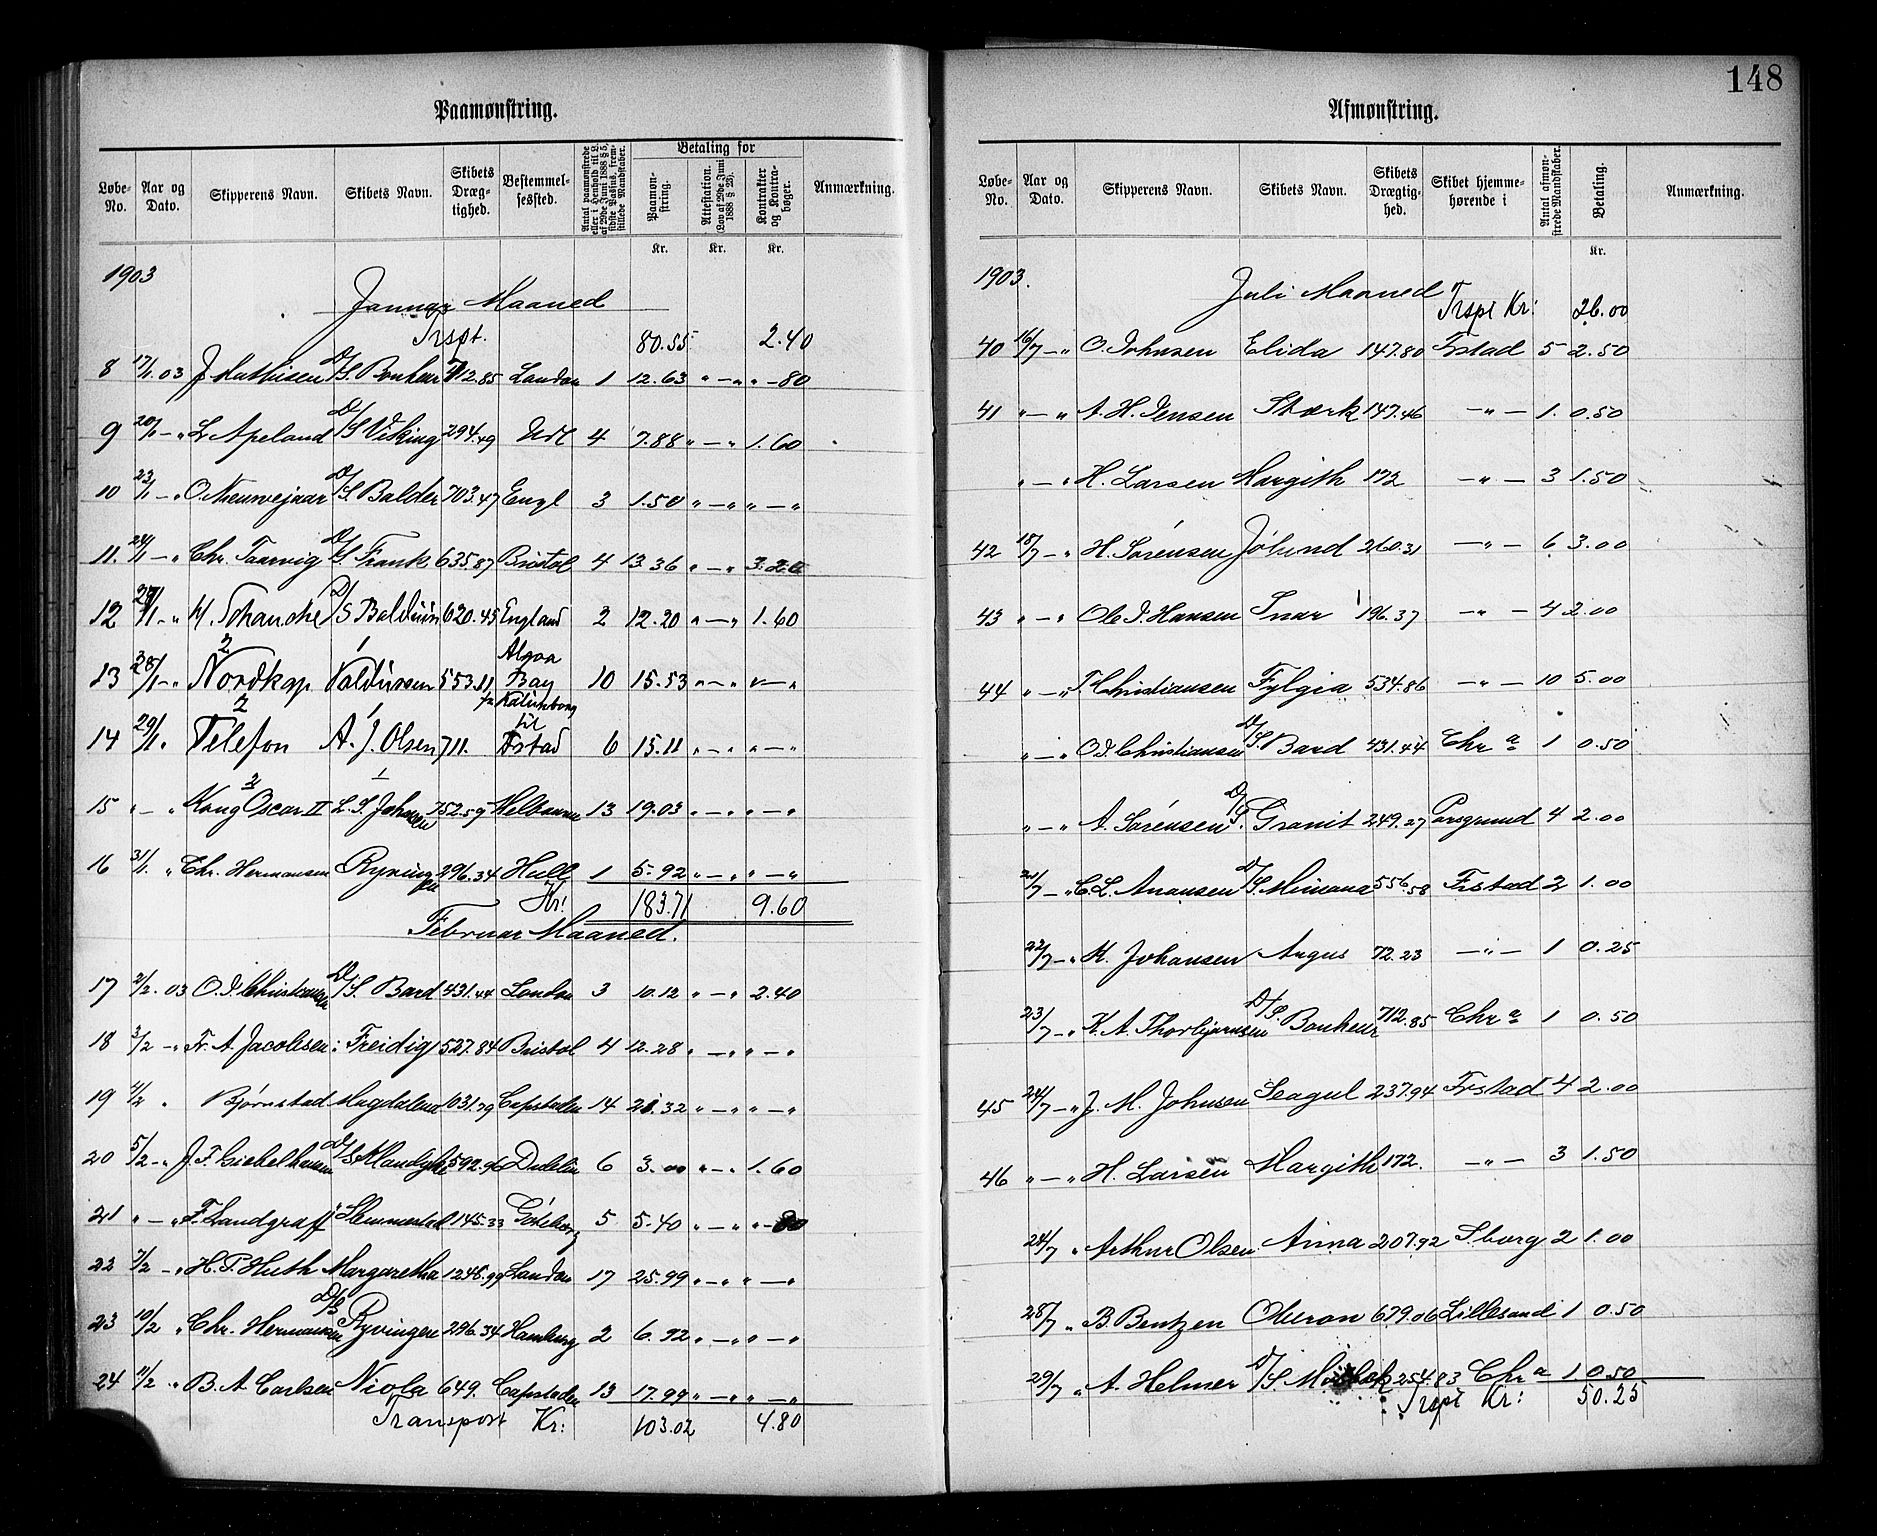 Paamønstring.
Løbe-No. Aar og Dato. Skipperens Navn. Skibets Navn. Skibets Dræg-tighed. Bestemmel-sessted. Antal paamønstrede eller i Henhold til L. af 29de Juni 1888 § 5, sidste Passus, frem-stillede Mandstaber. Betaling for Paamøn-string. Attestation. (Lov af 29de Juni 1888 § 23). Kontrakter og Kontra-bøger. Anmærkning.
Kr. Kr. Kr.
1903
Januar Maaned
Trspt. 80.55 2.40
8 17/1. 03 J. Mathisen D/S Bonheur 712.85 London 1 12.63 " — " " -80
9 20/1 - " L. Apeland D/S Viking 294.49 Udl 4 7.88 " — " 1.60
10 23/1 - " O. Nieuwejaar D/S Balder 703.47 Engl 3 1.50 " — " " — "
11. 24/1 - " Chr. Taarvig D/S Frank 635.87 Bristol 4 13.36 " — " 3.20
12 27/1 - " H. Schanche D/S Balduin 620.45 England 2 12.20 " — " 1.60
13 28/1 - " 2 Nordkap 1 Valdussen 553.11 Algoa Bay 10 15.53 " — " " — "
14 29/1 " 2 Telefon 1 A. J. Olsen 711. fr Kallundborg til Frstad 6 15.11 " — " " — "
15 " - " 2 Kong Oscar II 1 L. S. Johnsen 752.59 Melbourne 13 19.03 " — " " — "
16 31/1. " Chr. Hermansen Ryvingen 296.34 Hull 1 5.92 " — " " — "
Kr! 183.71 9.60
Februar Maaned.
17 2/2. 03 O. J. Christiansen D/S. Bard 431.44 London 3 10.12 " — " 2.40
18 3/2 - " Fr. A. Jacobsen Freidig 527.84 Bristol 4 12.28 " — " " — "
19 4/2 " Bjørnstad Magdalena 1031.79 Capstaden 14 21.32 " — " " — "
20 5/2 - " J. F. Giebelhausen D/S 592.96 Dublin 6 3.00 " — " 1.60
21 " — " F. Landgraff Slemmestad 145.33 Göteborg 5 5.40 " — " " -80
22 7/2 - " H. P. Huth Margaretha 1248.99 London 17 25.99 " — " " — "
23 10/2 " Chr. Hermansen D/S Ryvingen 296.34 Hamburg 2 6.92 " — " " — "
24 11/2 " B. A. Carlsen Niola 649. Capstaden 13 17.99 " — " " — "
Transport Kr: 103.02 4.80
148
Afmønstring.
Løbe-No. Aar og Dato. Skipperens Navn. Skibets Navn. Skibets Drægtig-hed. Skibet hjemme-hørende i Antal afmøn-strede Mandstaber. Betaling. Anmærkning.
Kr.
1903.
Juli Maaned
Trspt Kr: 26.00
40 16/7 - " O. Johnsen Elida 147.80 Frstad 5 2.50
41 " — " A. H. Jensen Stærk 147.46 — " — 1. 0.50
" — " H. Larsen Margith 172 — " — 3 1.50
42 18/7 - " H. Sørensen Jølund 260.31 — " — 6 3.00
43 " — " Ole J. Hansen Snar 196.37 — " — 4 2.00
44 " — " J. Christiansen Fylgia 534.86 — " — 10 5.00
" — " O. J. Christiansen D/S. Bard 431.44 Chr a 1 0.50
" — " A. Sørensen D/S. Granit 249.27 Porsgrund 4 2.00
21/7 - " C. L. Anansen D/S. Mimona 556.58 Frstad 2 1.00
22/7 - " K. Johansen Argus 72.23 — " — 1 0.25
23/7 - " K. A. Thorbjørnsen D/S. Bonheur 712.85 Chr a 1 0.50
45 24/7 - " J. M. Johnsen Seagul 237.94 Frstad 4 2.00
46 " — " H. Larsen Margith 172. — " — 3 1.50
24/7 " Arthur Olsen Anna 207.92 S.borg 2 1.00
28/7 " B. Bentzen Oberon 679.06 Lillesand 1 0.50
29/7 " A. Helmer D/S. 254.83 Chr a 1 0.50
Trspt Kr: 50.25